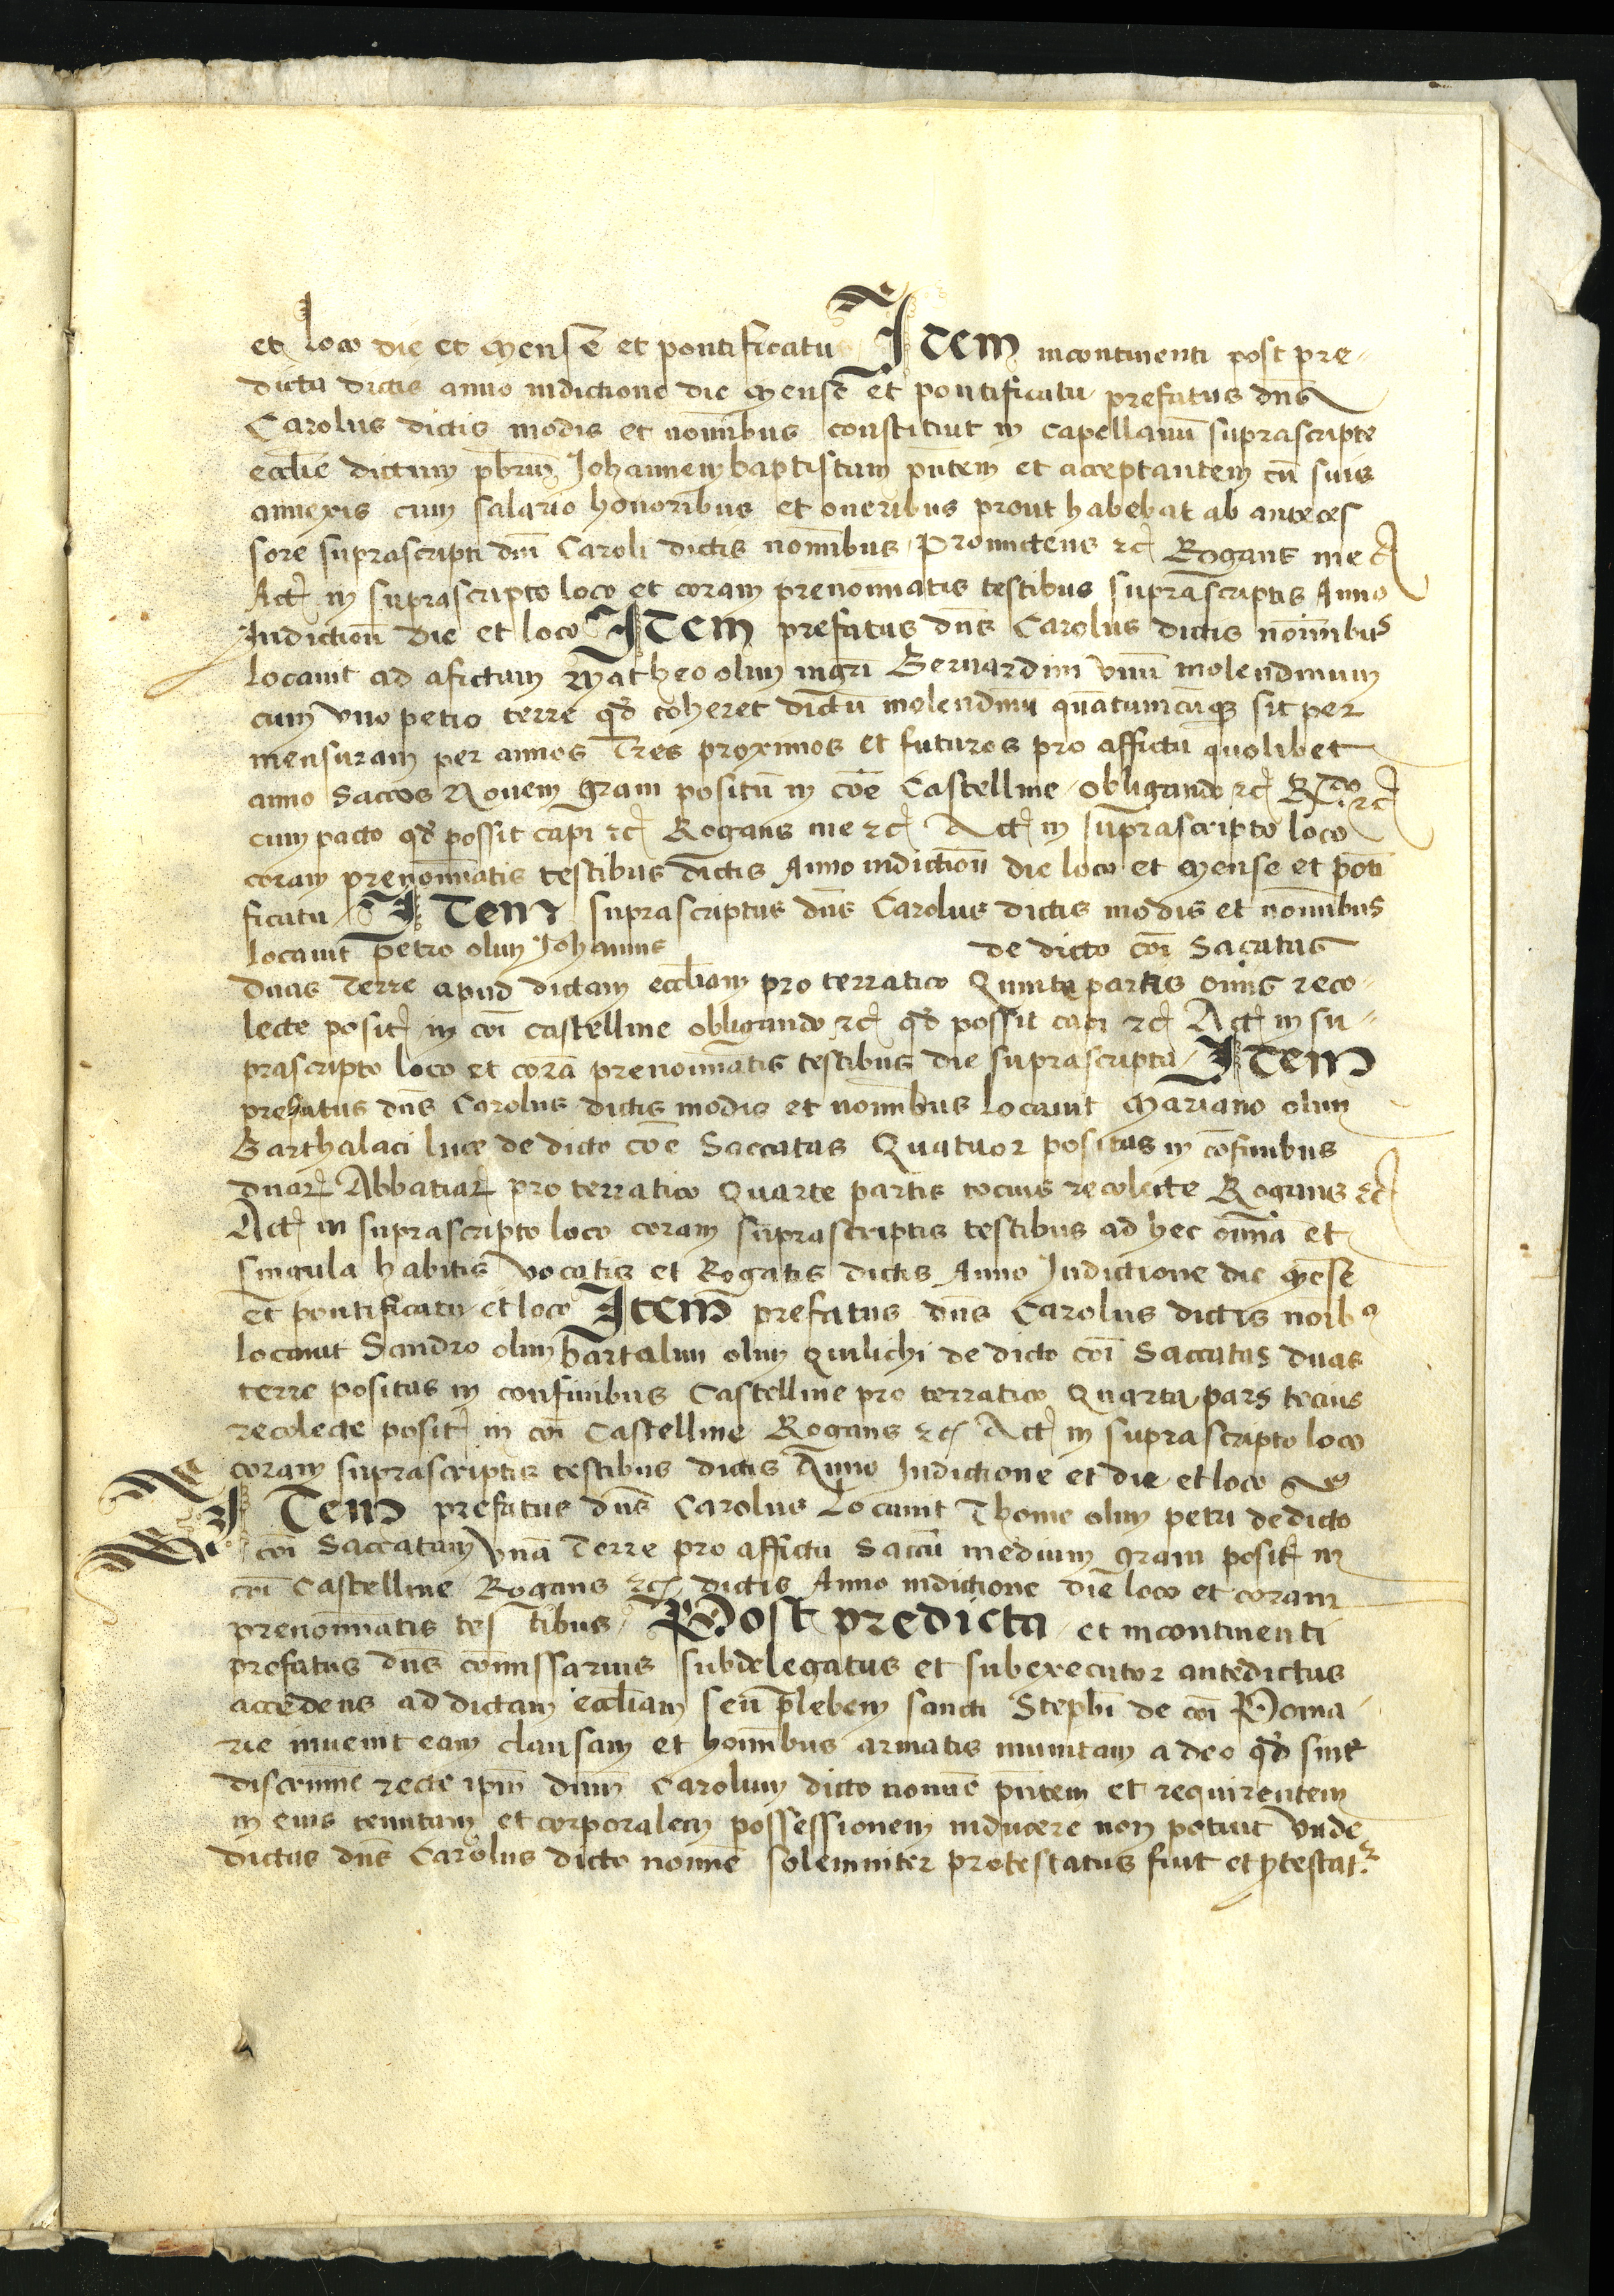 et loco die et mense et pontificatu Item incontinenti post pre-
dicta dictis anno indictione die mense et pontificatu prefatus dn̄s
Carolus dictis modis et nomībus constituit in capellanū suprascripte
eccl̄ie dictum pb̄rum Johannem baptistam pn̄tem et acceptantem cū suis
annexis cum salario honoribus et oneribus prout habebat ab anteces
sore suprascripti dn̄i Caroli dictis nomībus Promictens ⁊c̄ Rogans me ⁊c̄
Act̄ in suprascripto loco et coram prenomīatis testibus suprascriptis Anno
Indictiōn die et loco Item prefatus dn̄s Carolus dictis nomībus
locauit ad afictum Matheo olim mḡri Bernardini vnū molendinum
cum vno petio terre qd̄ coheret dictū molendinū quātumcūq sit per
mensuram per annos Tres proximos et futuros pro affictu quolibet
anno saccos Nouem grani positū in cōe Castelline obligando ⁊c̄ R.do ⁊c̄
cum pacto qd̄ possit capi ⁊c̄ Rogans me ⁊c̄ Act̄ in suprascripto loco
coram prenomīatis testibus dictis Anno indictiōn die loco et mense et pōti
ficatu Item suprascriptus dn̄s Carolus dictis modis et nomībus
locauit petro olim Johannis de dicto cōi Sacatas
duas Terre apud dictam eccl̄iam pro terratico Quinte partis om̄is reco-
lecte posit̄ in cōi castelline obligando ⁊c̄ qd̄ possit capi ⁊c̄ Act̄ in su-
prascripto loco et corā prenomīatis testibus die suprascripta Item
prefatus dn̄s Carolus dictis modis et nomībus locauit Mariano olim
Barthalaci luce de dicto cōe Saccatas Quatuor positas in cōfinibus
duar̄ Abbatiar̄ pro terratico Quarte partis tocius recolecte Rogans ⁊c̄
Act̄ in suprascripto loco coram suprascriptis testibus ad hec omīa et
singula habitis vocatis et Rogatis dictis Anno Indictione die mēse
et pontificatu et loco Item prefatus dn̄s Carolus dictis noīb9
locauit Sandro olim bartalini olim Quilichi de dicto cōi Saccatas duas
terre positas in confinibus Castelline pro terratico Quarta pars tocius
recolecte posit̄ in cōi Castelline Rogans ⁊c̄ Act̄ in suprascripto loco
coram suprascriptis testibus dictis Anno Indictione et die et loco
Item prefatus dn̄s Carolus Locauit Thome olim petri de dicto
cōi Saccatam vnā Terre pro affictu Saccū medium grani posit̄ in
cōi Castelline Rogans ⁊c̄ dictis Anno indictione die loco et coram
prenomīatis testibus Post predicta et incontinenti
prefatus dn̄s comīssarius subdelegatus et subexecutor antedictus
accedens ad dictam eccl̄iam seu plebem sancti Stephī de cōi Poma
rie inuenit eam clausam et homībus armatis munitam adeo qd̄ sine
discrimine recte ip̄m dn̄m Carolum dicto nomīe pn̄tem et requirentem
in eius tenutam et corporalem possessionem inducere non potuit Vnde
dictus dn̄s Carolus dicto nomīe solemniter protestatus fuit et ꝓtestat̄